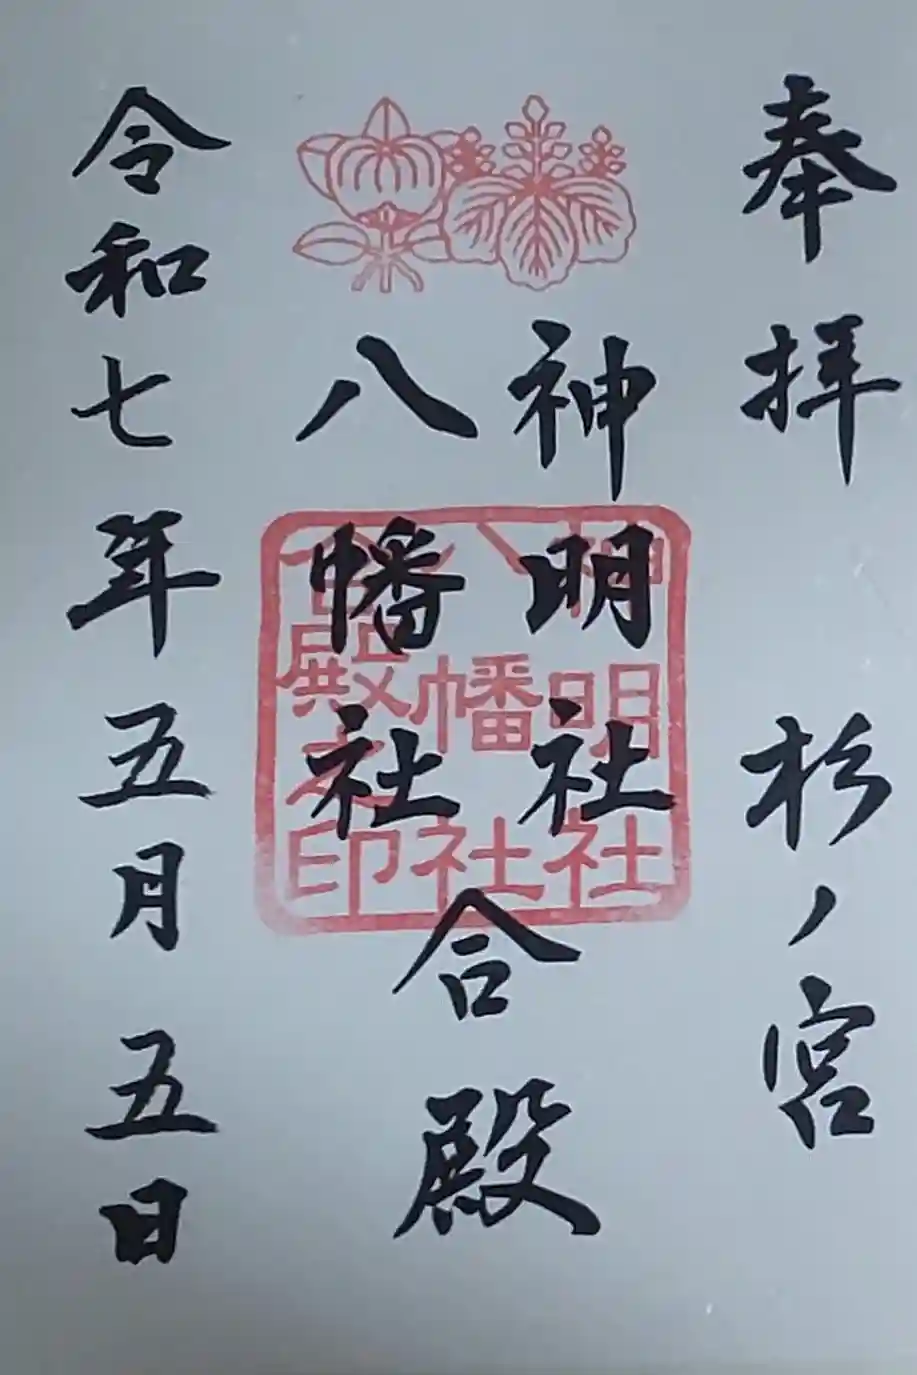 奉拝　杉ノ宮
神明社
八幡社
合殿
令和七年五月五日
神明社
八幡社
合殿之印